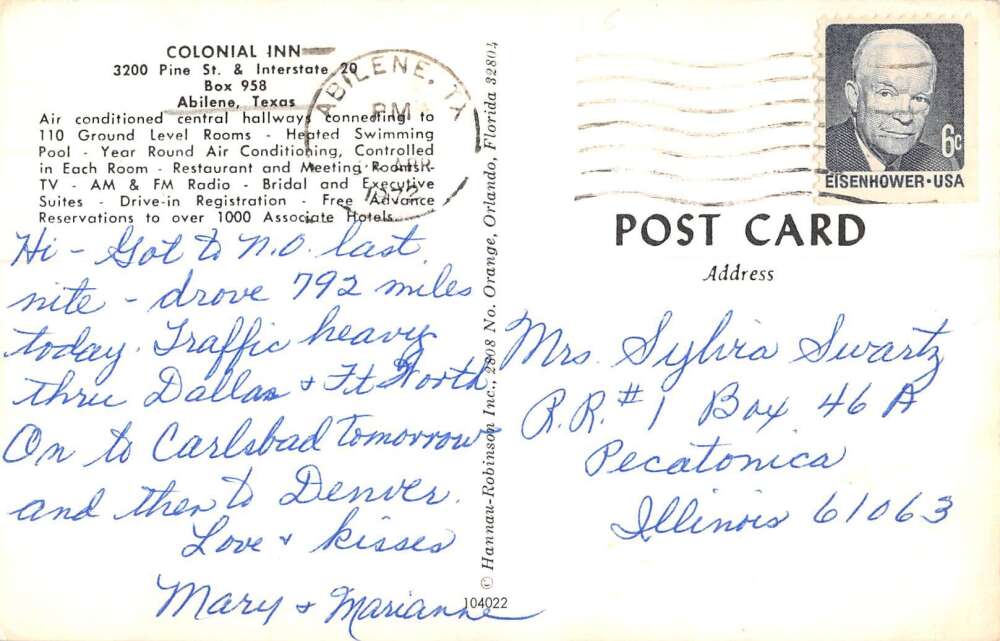 COLONIAL INN
3200 Pine St. & Interstate 20
Box 958
Abilene, Texas
Air conditioned central hallways connecting to
110 Ground Level Rooms - Heated Swimming
Pool - Year Round Air Conditioning, Controlled
in Each Room - Restaurant and Meeting Rooms -
TV - AM & FM Radio - Bridal and Executive
Suites - Drive-in Registration - Free Advance
Reservations to over 1000 Associate Hotels.
Hi - Got to N.O. last
nite - drove 792 miles
today. Traffic heavy
thru Dallas + Ft Worth
On to Carlsbad tomorrow
and then to Denver.
Love + kisses
Mary + Marianne
© Hannau-Robinson Inc., 2808 No. Orange, Orlando, Florida 32804
104022
ABILENE, TX
PM
APR
1972
6c
EISENHOWER · USA
POST CARD
Address
Mrs. Sylvia Swartz
R.R. #1 Box 46 A
Pecatonica
Illinois 61063